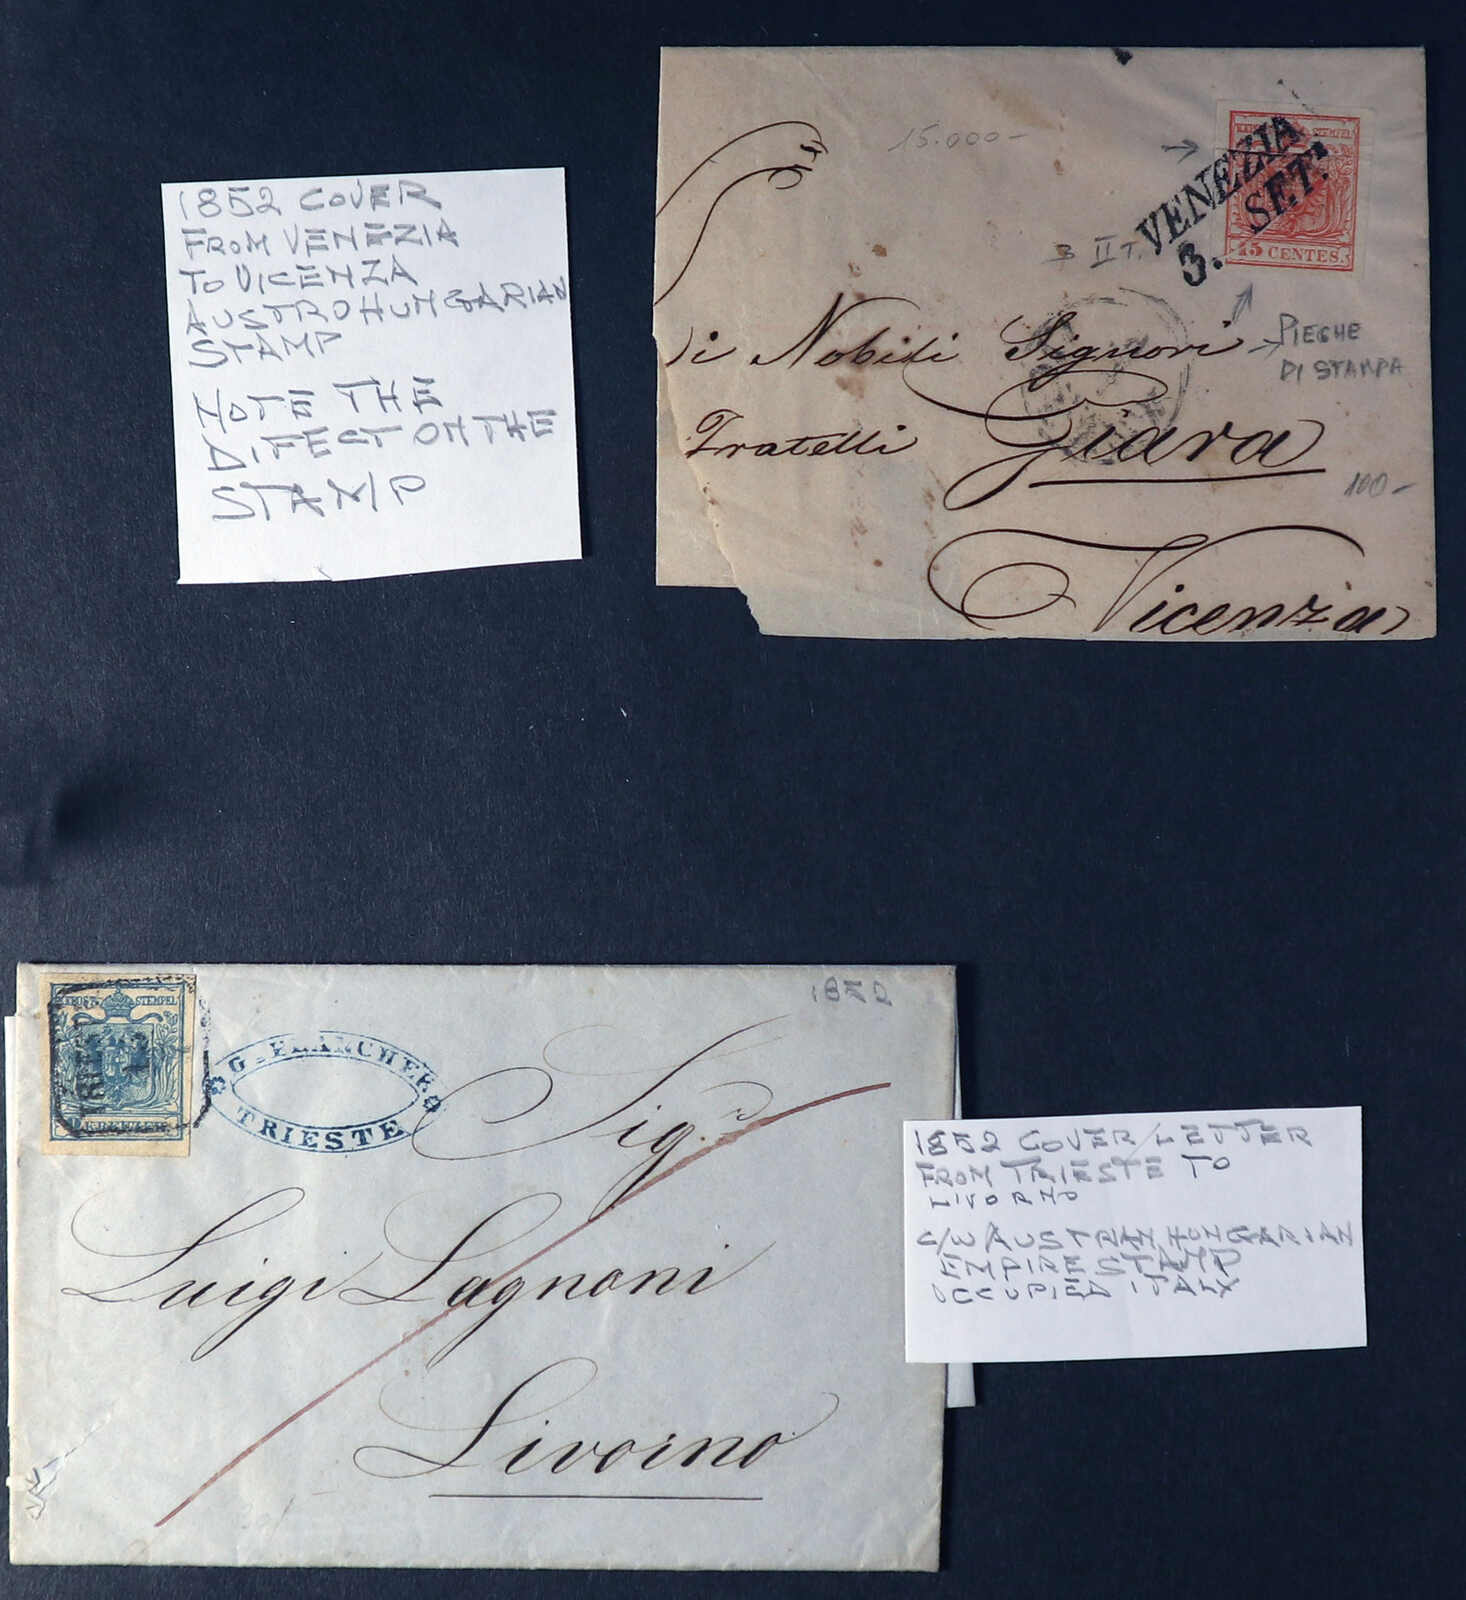 1852 COVER
FROM VENEZIA
TO VICENZA
AUSTROHUNGARIAN
STAMP
NOTE THE
DIFECT ON THE
STAMP
15.000-
KKPOST-STEMPEL
15 CENTES.
VENEZIA
3. SET:
3 II T.
PIEGHE
DI STAMPA
)i Nobili Signori
Fratelli Giara
100-
Vicenza
1852
KKPOST-STEMPEL
9 KREUZER
TRIEST
TRIESTE
Sig.r
Luigi Lagnoni
Livorno
1852 COVER/LETTER
FROM TRIESTE TO
LIVORNO
C/W AUSTRIAN HUNGARIAN
EMPIRE STAMP
OCCUPIED ITALY